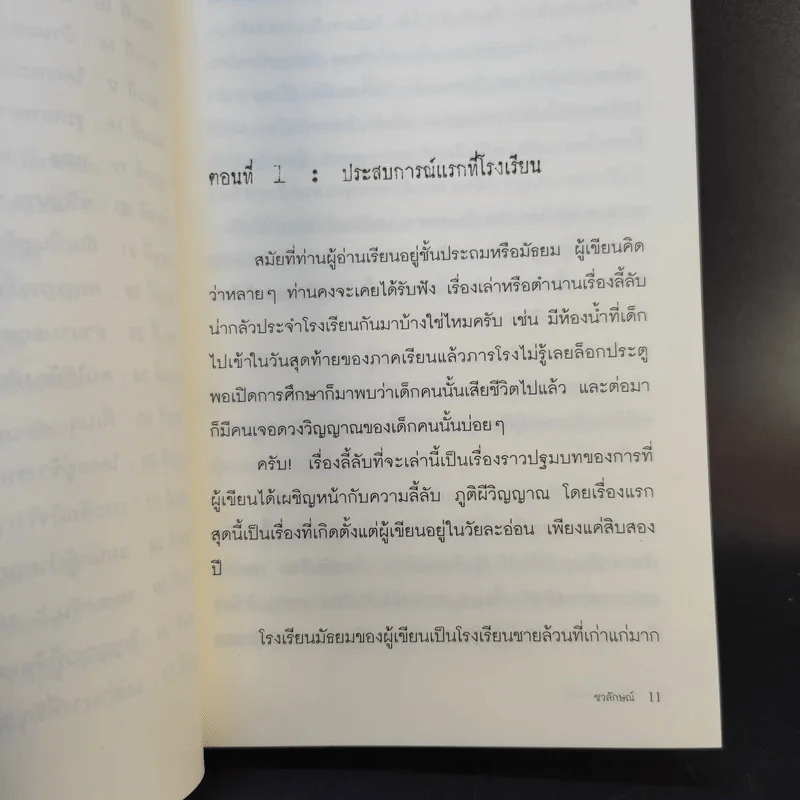 ตอนที่ 1 : ประสบการณ์แรกที่โรงเรียน
สมัยที่ท่านผู้อ่านเรียนอยู่ชั้นประถมหรือมัธยม ผู้เขียนคิด
ว่าหลายๆ ท่านคงจะเคยได้รับฟัง เรื่องเล่าหรือตำนานเรื่องลี้ลับ
น่ากลัวประจำโรงเรียนกันมาบ้างใช่ไหมครับ เช่น มีห้องน้ำที่เด็ก
ไปเข้าในวันสุดท้ายของภาคเรียนแล้วภารโรงไม่รู้เลยล็อกประตู
พอเปิดการศึกษาก็มาพบว่าเด็กคนนั้นเสียชีวิตไปแล้ว และต่อมา
ก็มีคนเจอดวงวิญญาณของเด็กคนนั้นบ่อยๆ
ครับ! เรื่องลี้ลับที่จะเล่านี้เป็นเรื่องราวปฐมบทของการที่
ผู้เขียนได้เผชิญหน้ากับความลี้ลับ ภูติผีวิญญาณ โดยเรื่องแรก
สุดนี้เป็นเรื่องที่เกิดตั้งแต่ผู้เขียนอยู่ในวัยละอ่อน เพียงแค่สิบสอง
ปี
โรงเรียนมัธยมของผู้เขียนเป็นโรงเรียนชายล้วนที่เก่าแก่มาก
ชวลักษณ์ 11